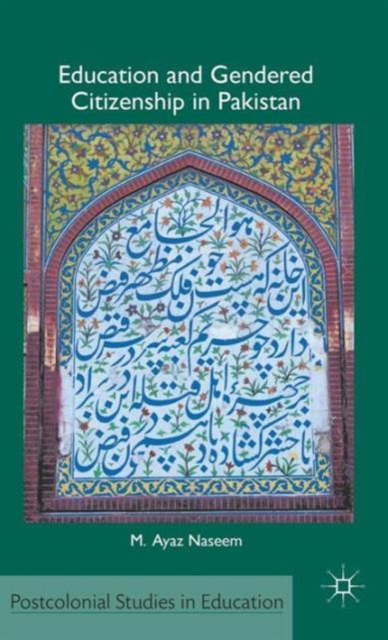 Education and Gendered
Citizenship in Pakistan
هوالجامع
این خانه که هست چون فلک مظهر فیض
دارد چو حریم کعبه در فیض
بر چهره اهل قبله این در
تا حشر گشاده در فیض
M. Ayaz Naseem
Postcolonial Studies in Education